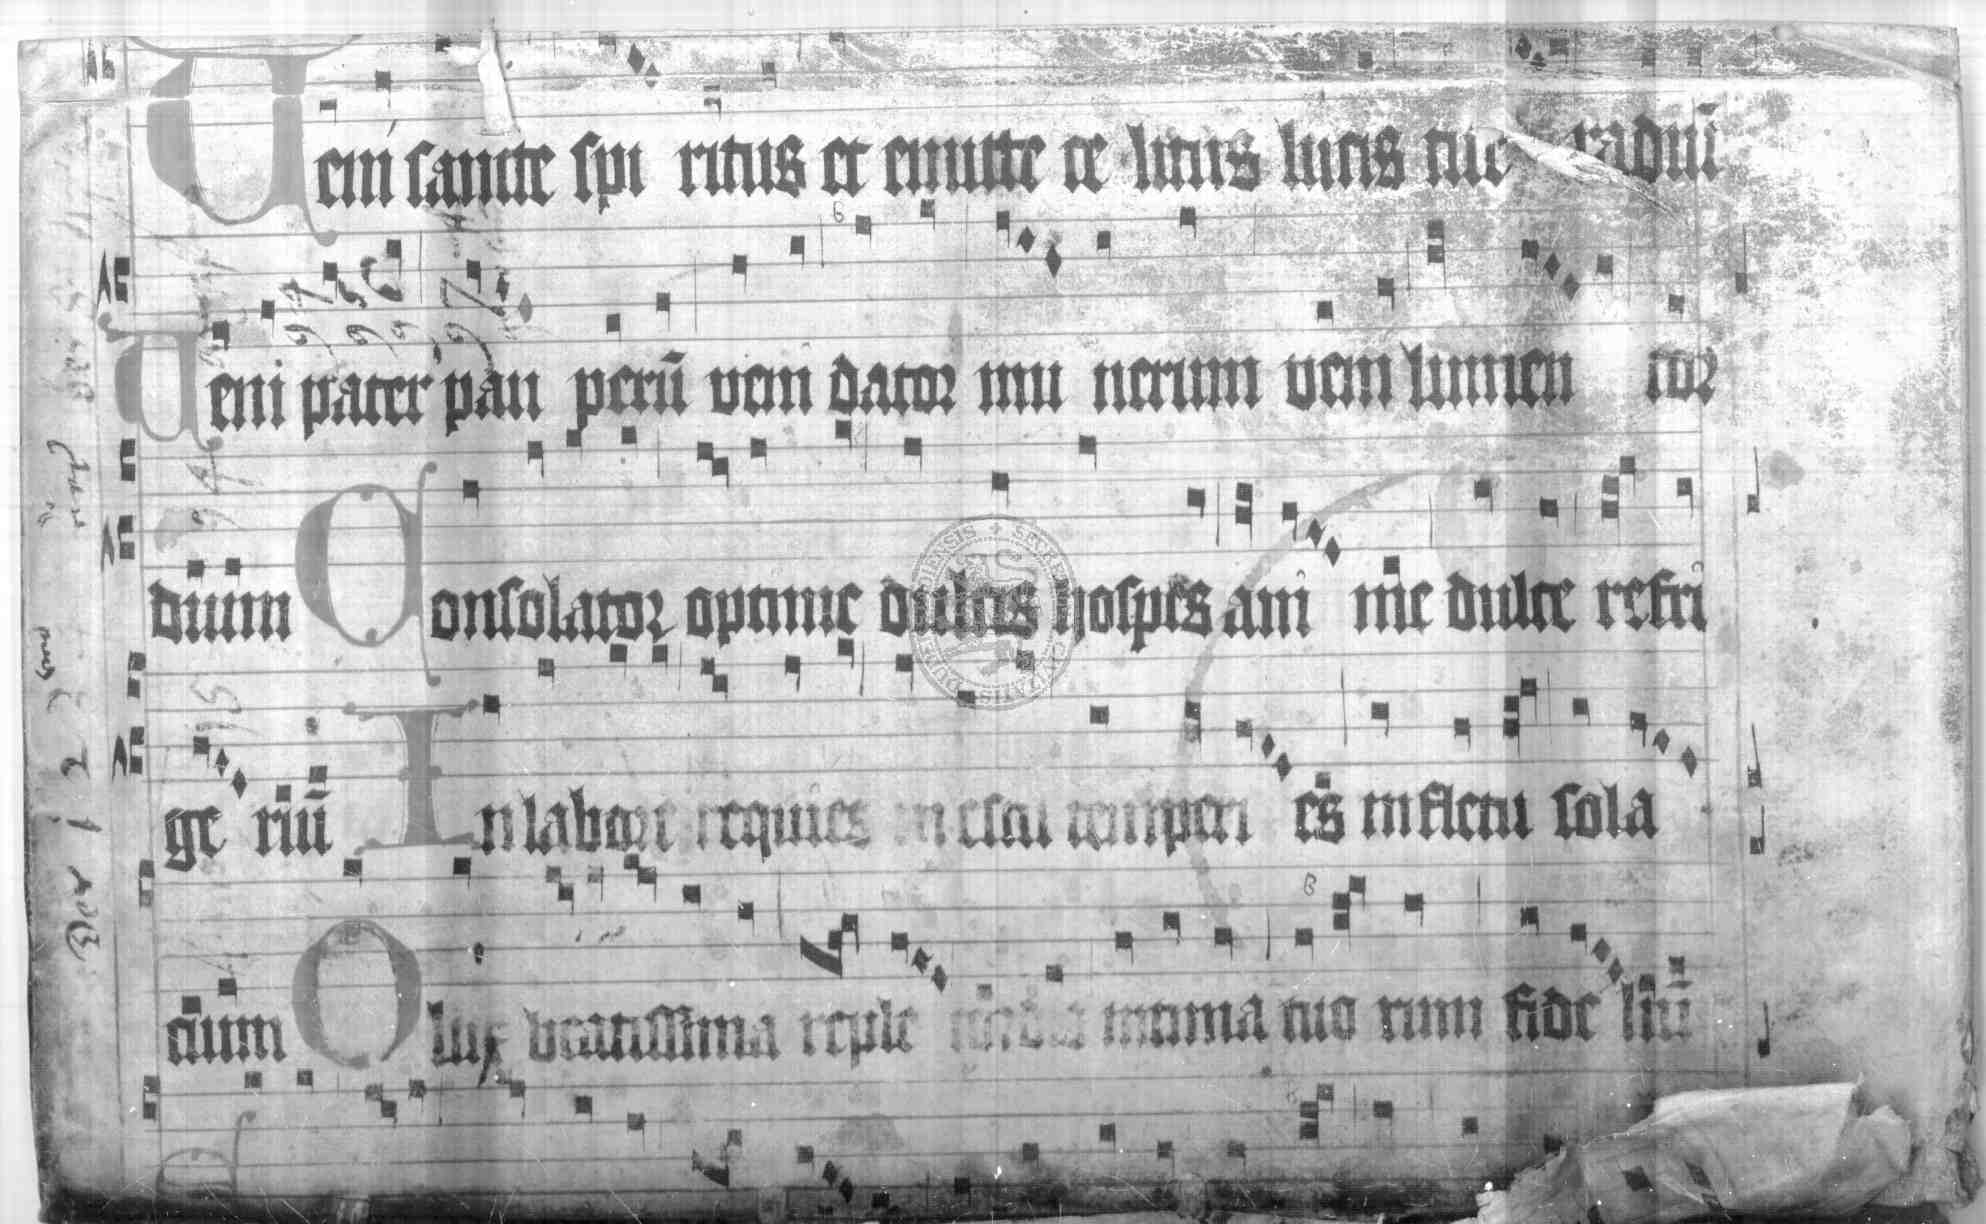 Veni sancte spi ritus et emitte ce litus lucis tue radiū
Veni pater pau perū veni dator mu nerum veni lumen cor
dium Consolator optime dulcis hospes ani me dulce refri
ge riū In labore requies in estu temperi es in fletu sola
cium O lux beatissima reple cordis intima tuo rum fide liū